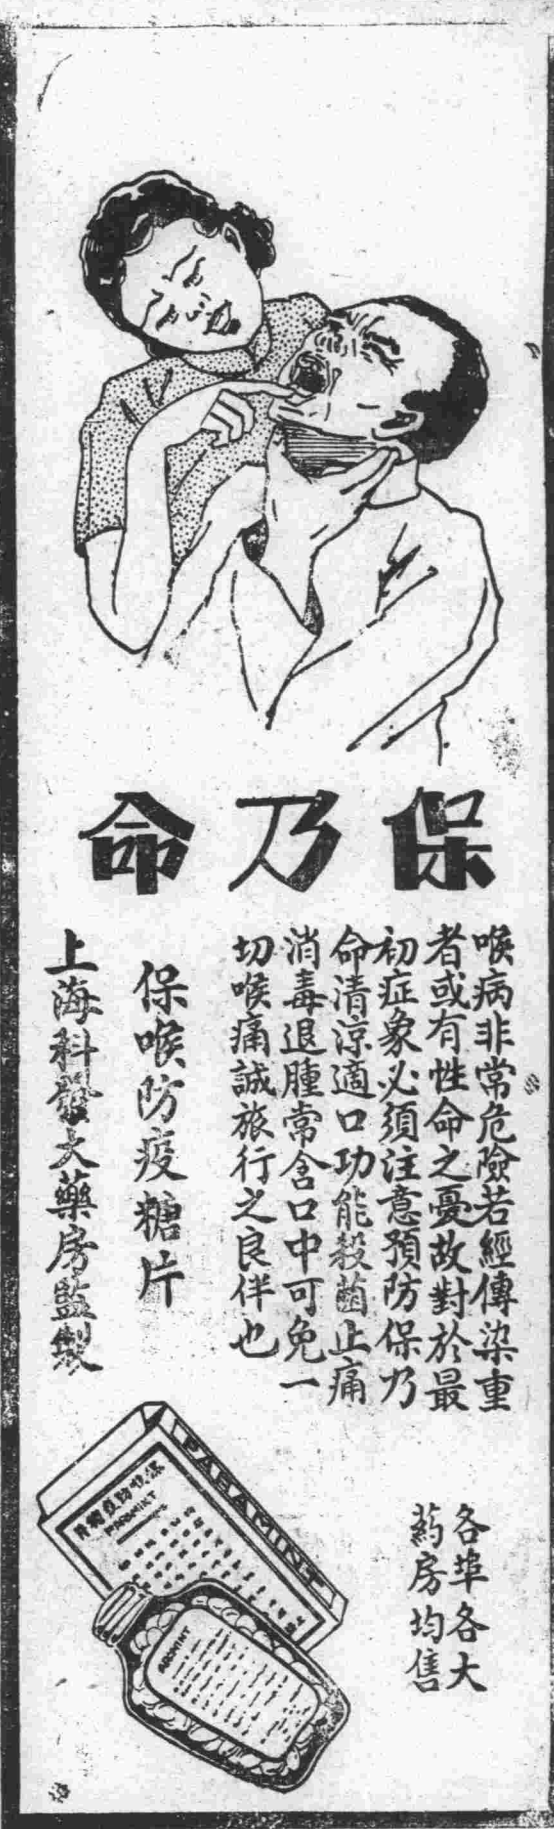 保乃命
喉病非常危險若經傳染重
者或有性命之憂故對於最
初症象必須注意預防保乃
命清涼適口功能殺菌止痛
消毒退腫常含口中可免一
切喉痛誠旅行之良伴也
保喉防疫糖片
上海科發大藥房監製
各埠各大
藥房均售
PARAMINT